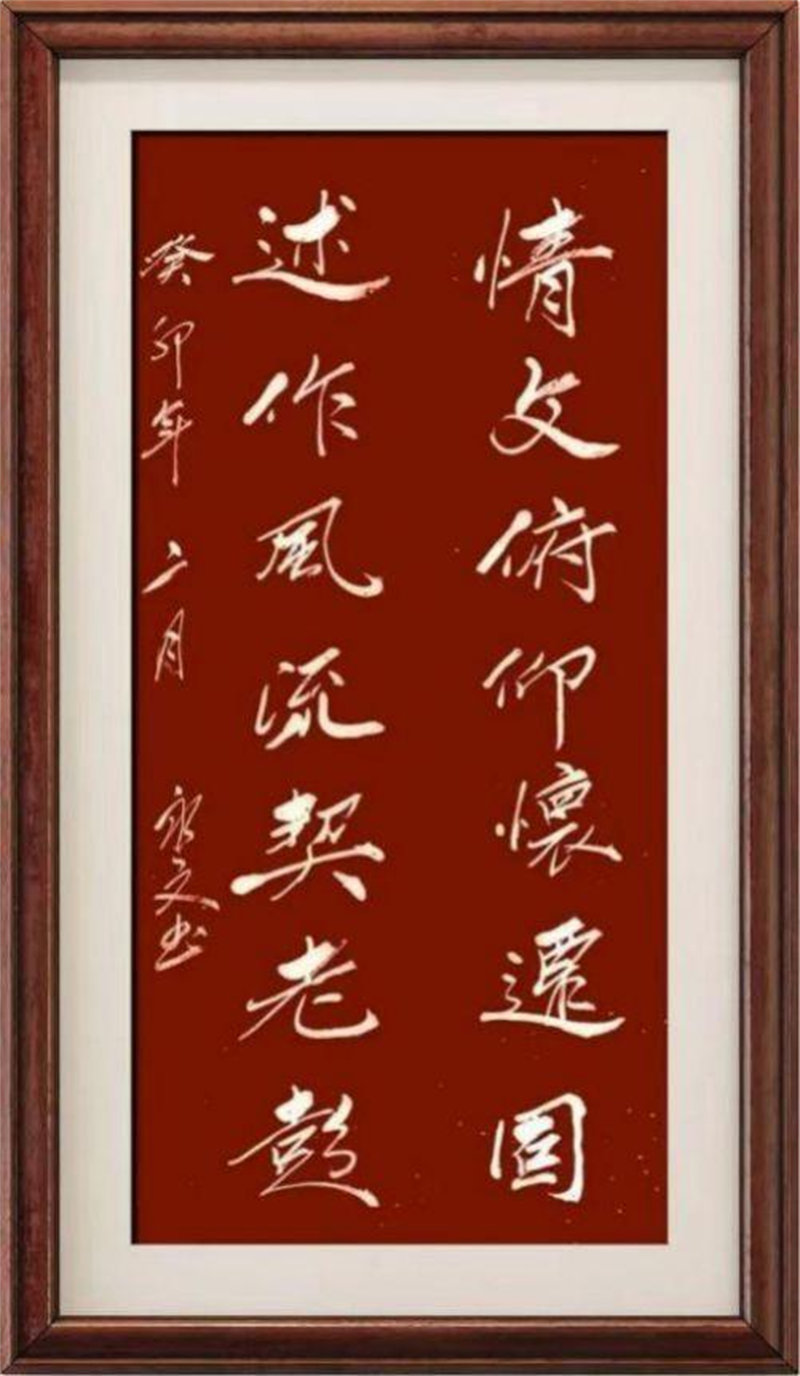 情文俯仰懷遷固
述作風流契老彭
癸卯年二月 永文书